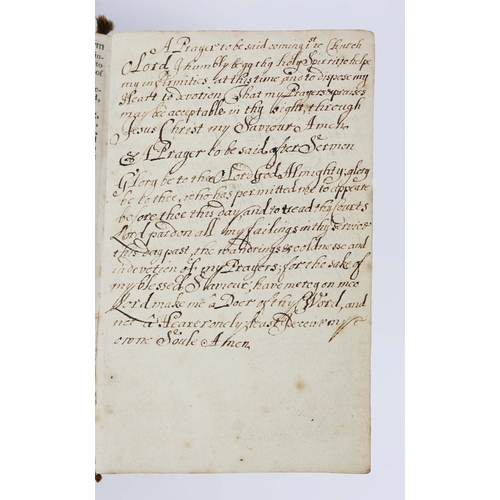 A Prayer to be said coming 1st to Church
O Lord I humbly begg thy holy Spirit to helpe
my infirmities at this time and to dispose my
Heart to devotion that my Prayers & praises
may be acceptable in thy sight, through
Jesus Christ my Saviour Amen
A Prayer to be said after Sermon
Glory be to thee O Lord God Almighty, glory
be to thee, who has permitted me to appeare
before thee this day, and to tread thy Courts
Lord pardon all my failings in thy service
this day past, the wandrings & coldnesse and
indevotion of my Prayers, for the sake of
my blessed Saviour, have mercy on mee
Lord make me a Doer of thy Word, and
not a Hearer onely, least I deceive my
owne Soule Amen